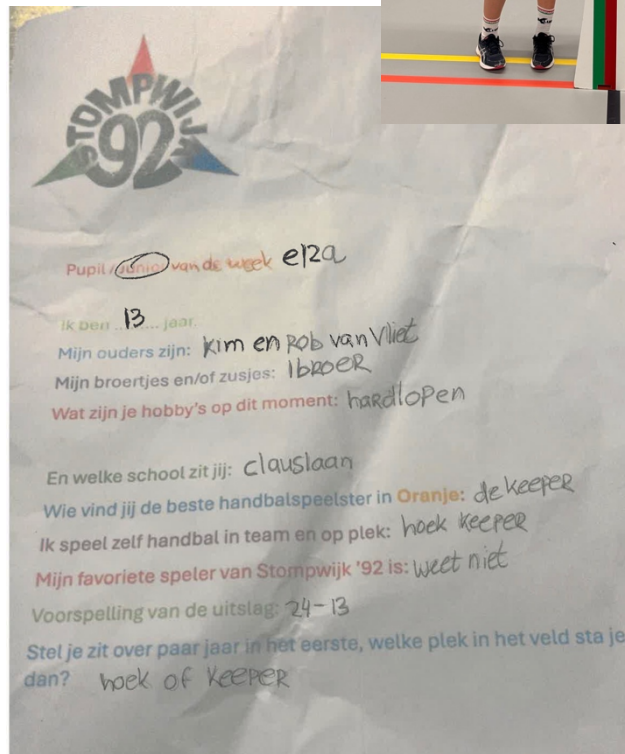 STOMPWIJK
92
Pupil / Junior van de week elza
Ik ben ..13.. jaar.
Mijn ouders zijn: Kim en Rob van Vliet
Mijn broertjes en/of zusjes: 1 broer
Wat zijn je hobby's op dit moment: hardlopen
En welke school zit jij: clauslaan
Wie vind jij de beste handbalspeelster in Oranje: de keeper
Ik speel zelf handbal in team en op plek: hoek keeper
Mijn favoriete speler van Stompwijk '92 is: weet niet
Voorspelling van de uitslag: 24-13
Stel je zit over paar jaar in het eerste, welke plek in het veld sta je
dan? hoek of keeper